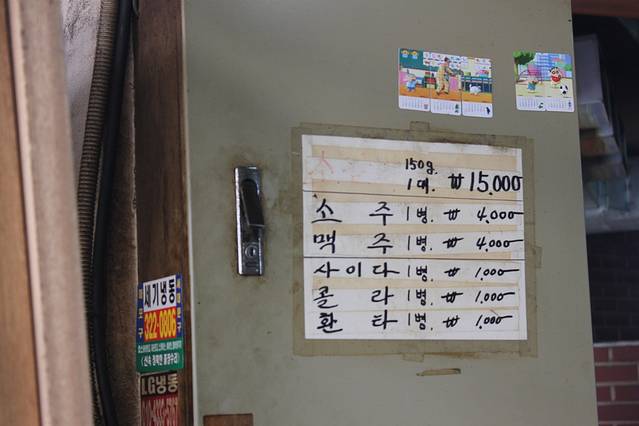 소 150g.
1대. ₩15,000
소 주 1병. ₩ 4,000
맥 주 1병. ₩ 4,000
사이다 1병. ₩ 1,000
콜 라 1병. ₩ 1,000
환 타 1병. ₩ 1,000
세기냉동
322-0806
LG냉동